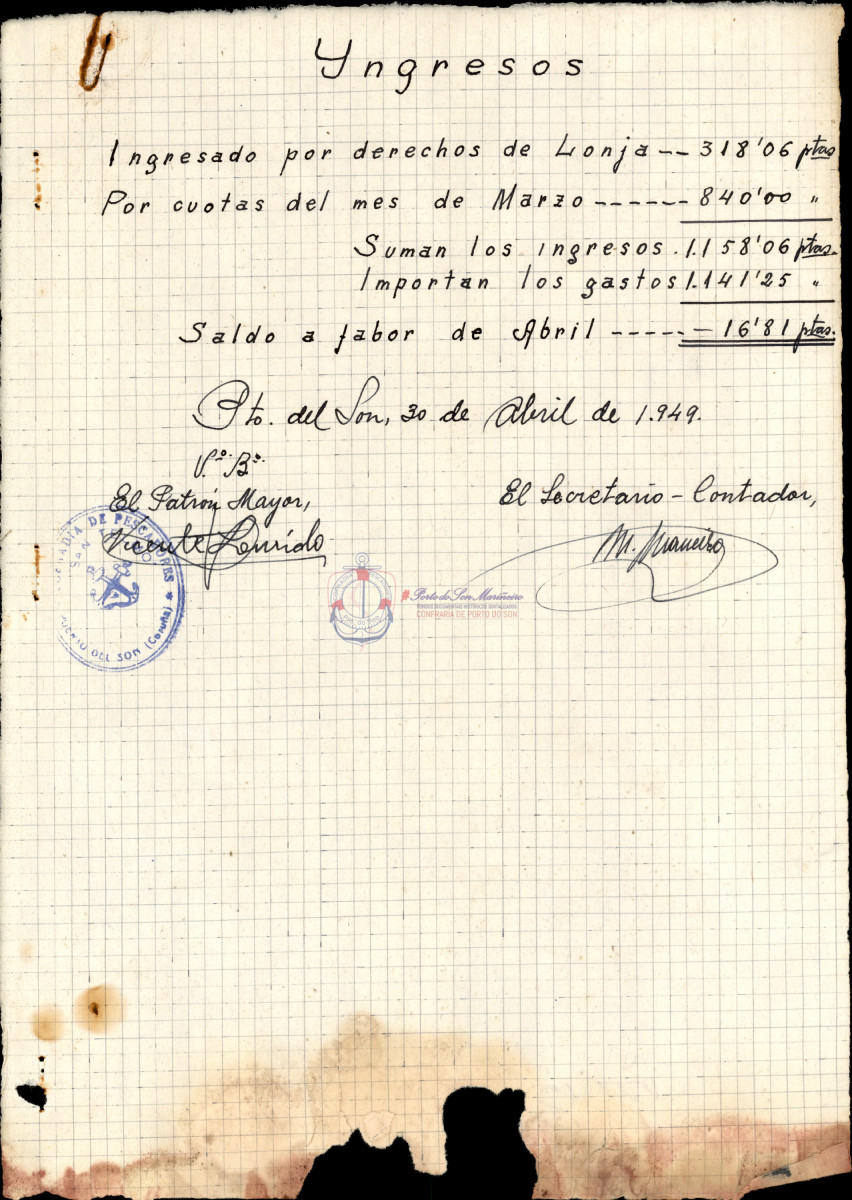 Yngresos
Ingresado por derechos de Lonja -- 318'06 ptas
Por cuotas del mes de Marzo ------ 840'00 "
Suman los ingresos. 1.158'06 ptas.
Importan los gastos 1.141'25 "
Saldo a fabor de Abril ----- - 16'81 ptas.
Pto. del Son, 30 de Abril de 1.949.
V.º B.º
El Patrón Mayor,
El Secretario - Contador,
Vicente Lourido
M. Maneiro
COFRADIA DE PESCADORES
SAN
PUERTO DEL SON (Coruña)
#Porto do Son Mariñeiro
FONDOS DOCUMENTAIS HISTÓRICOS DIXITALIZADOS
CONFRARIA DE PORTO DO SON